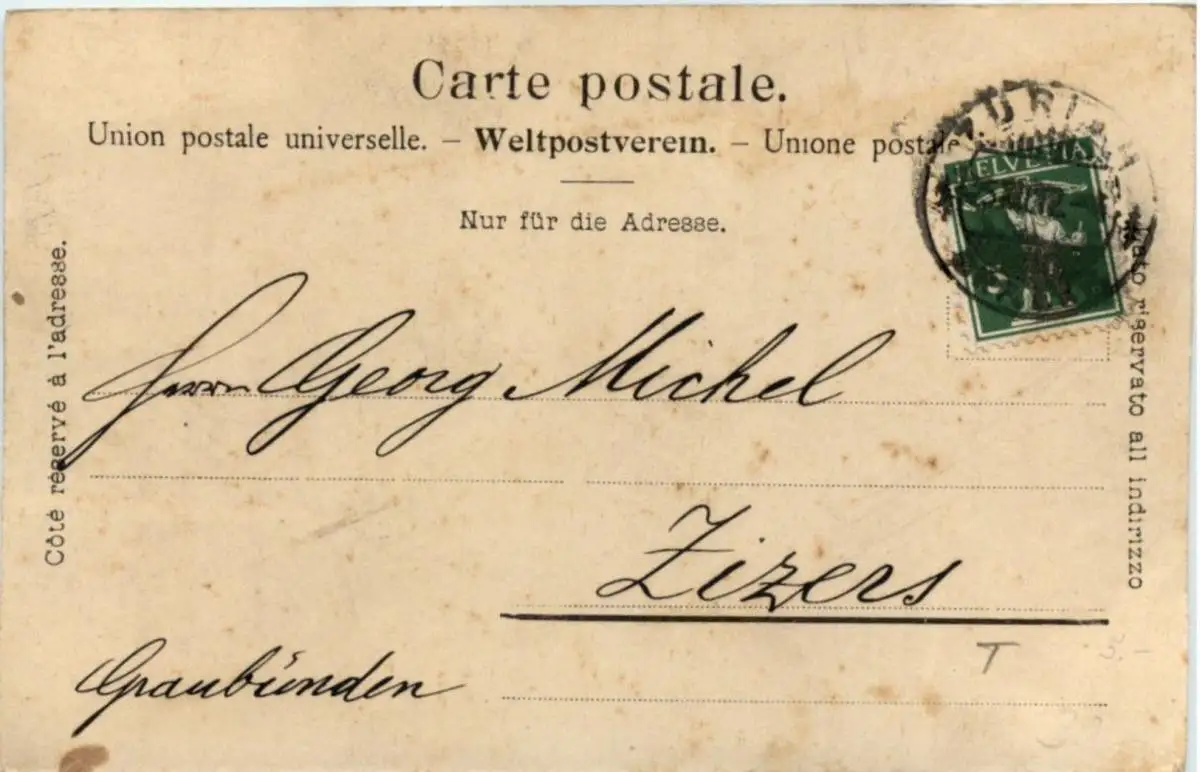 Carte postale.
Union postale universelle. – Weltpostverein. – Unione postale
Nur für die Adresse.
ZÜRICH
HELVETIA
Côté réservé à l'adresse.
Lato riservato all indirizzo
Herrn Georg Michel
Zizers
Graubünden
T
3.-